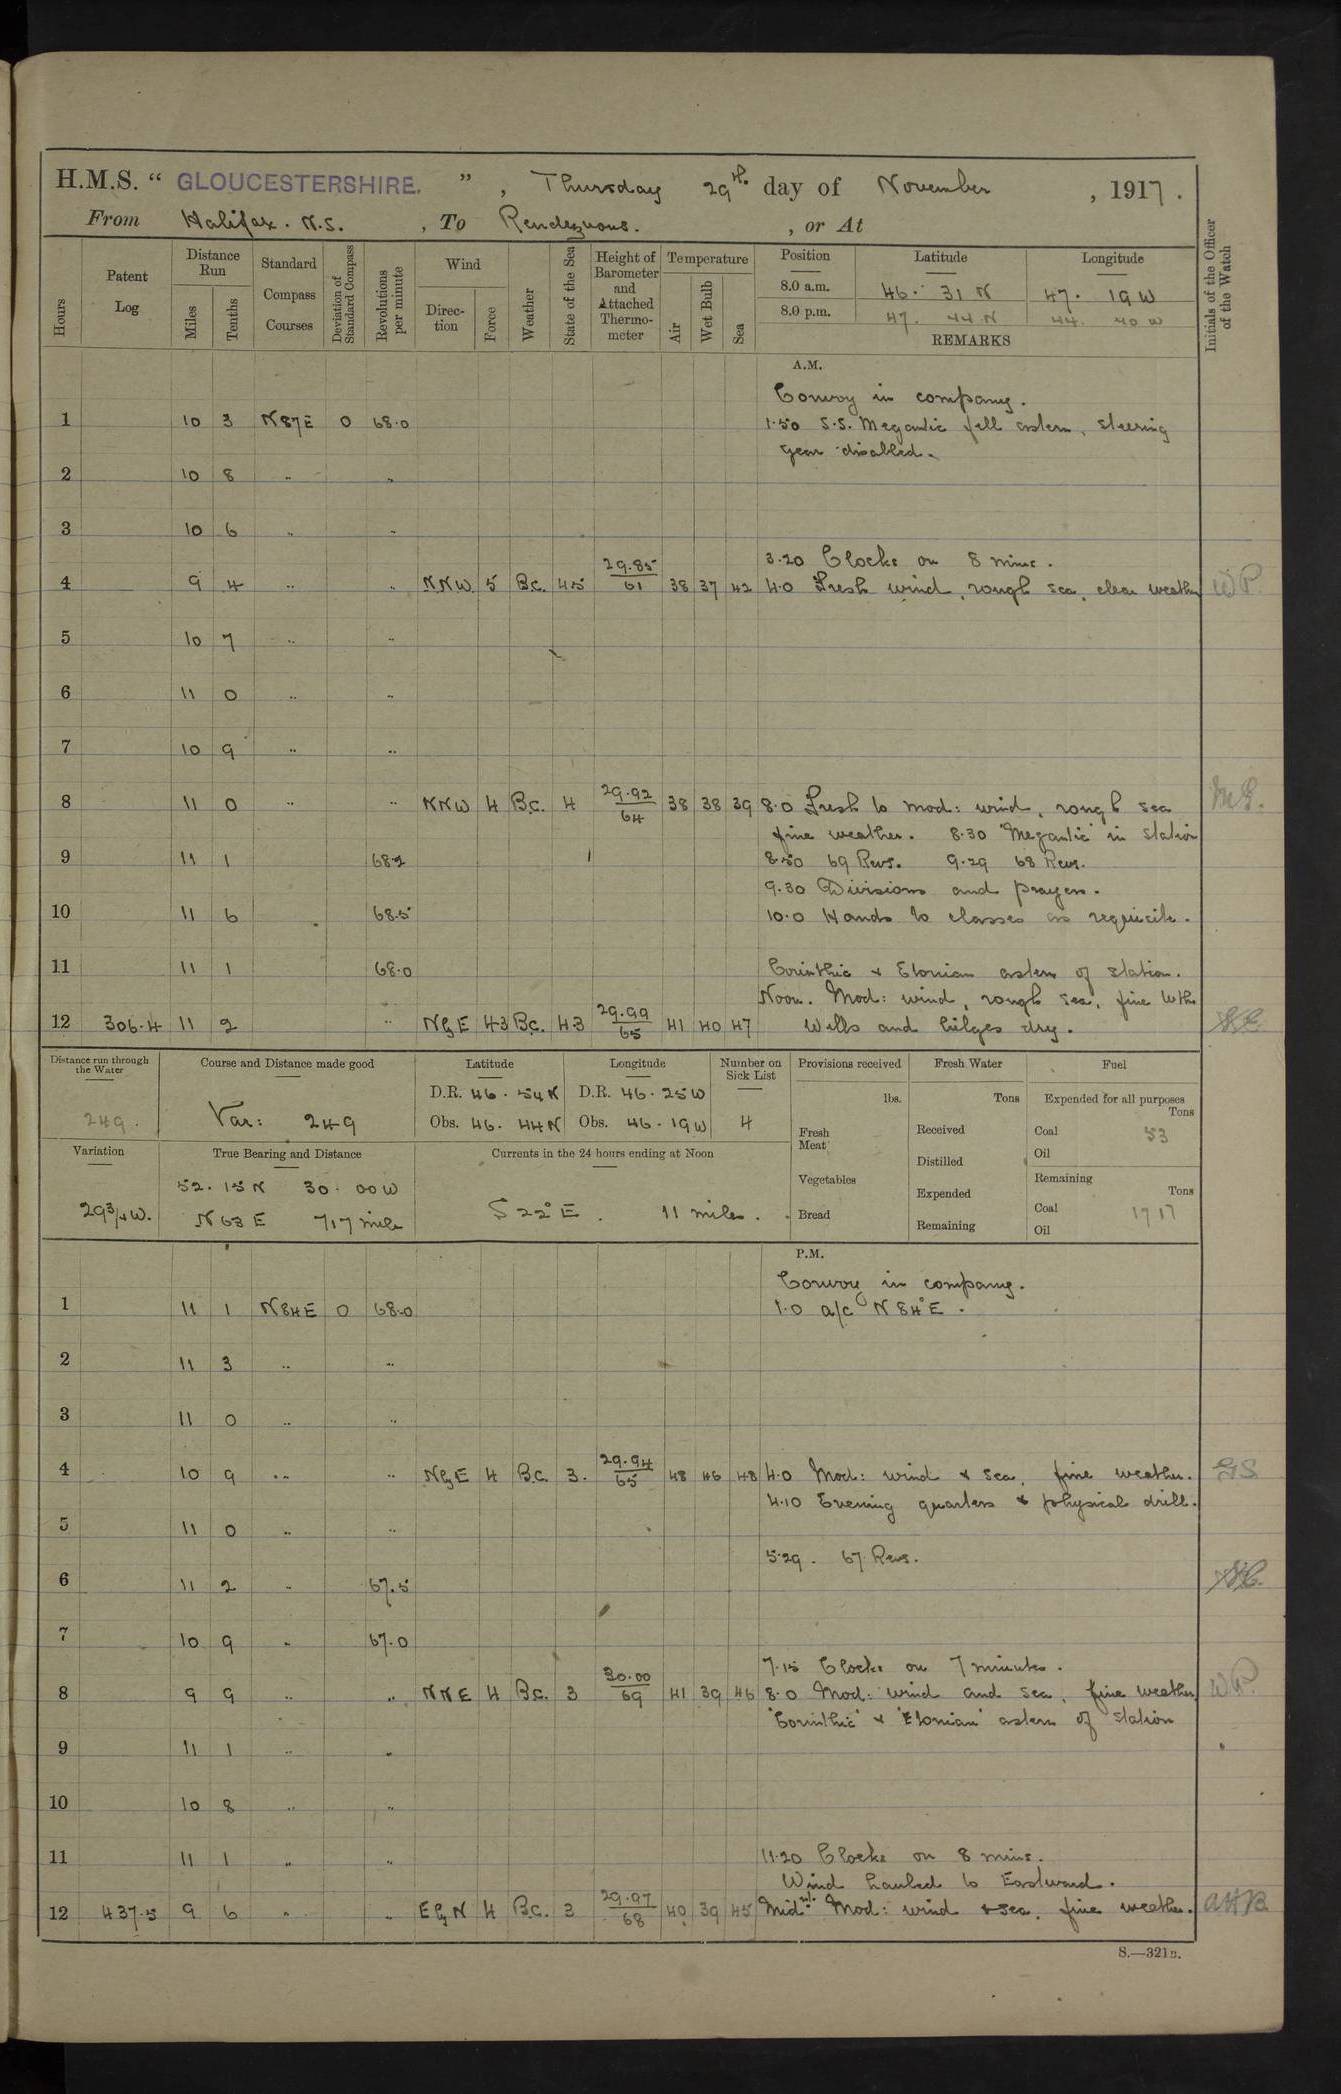 H.M.S. “ GLOUCESTERSHIRE. ” , Thursday 29th day of November , 1917 .
From Halifax . N.S. , To Rendezvous. , or At
Hours
Patent Log
Distance Run
Miles
Tenths
Standard Compass Courses
Deviation of Standard Compass
Revolutions per minute
Wind
Direction
Force
Weather
State of the Sea
Height of Barometer and Attached Thermometer
Temperature
Air
Wet Bulb
Sea
Position Latitude Longitude
8.0 a.m. 46 . 31 N 47 . 19 W
8.0 p.m. 47 . 44 N 44 . 40 W
REMARKS
Initials of the Officer of the Watch
A.M.
Convoy in company .
1 10 3 N87E 0 68.0 1.50 S.S. Megantic fell astern, steering
gear disabled .
2 10 8 .. ..
3 10 6 .. ..
3.20 Clocks on 8 mins .
4 9 4 .. .. NNW 5 B.C. 45 29.85/61 38 37 42 4.0 Fresh wind, rough sea, clear weather W P.
5 10 7 .. ..
6 11 0 .. ..
7 10 9 .. ..
8 11 0 .. .. NNW 4 B.C. 4 29.92/64 38 38 39 8.0 Fresh to mod: wind, rough sea
fine weather . 8.30 "Megantic" in station
9 11 1 68.2 8.50 69 Revs. 9.29 68 Revs.
9.30 Divisions and prayers .
10 11 6 68.5 10.0 Hands to classes as requisite .
11 11 1 68.0 Corinthic & Etonian astern of station .
Noon . Mod: wind, rough sea, fine Wthr
12 306.4 11 2 .. N by E 43 B.C. 43 29.99/65 41 40 47 Wells and bilges dry .
Distance run through the Water
249 .
Course and Distance made good
Var: 249
Latitude
D.R. 46 . 54 N
Obs. 46 . 44 N
Longitude
D.R. 46 . 25 W
Obs. 46 . 19 W
Number on Sick List
4
Variation
29 3/4 W.
True Bearing and Distance
52 . 15 N 30 . 00 W
N 63 E 717 mile
Currents in the 24 hours ending at Noon
S 22° E . 11 miles .
Provisions received
lbs.
Fresh Meat
Vegetables
Bread
Fresh Water
Tons
Received
Distilled
Expended
Remaining
Fuel
Expended for all purposes
Tons
Coal 53
Oil
Remaining
Tons
Coal 1717
Oil
P.M.
Convoy in company .
1 11 1 N84E 0 68.0 1.0 a/c N 84° E .
2 11 3 .. ..
3 11 0 .. ..
4 10 9 .. .. N by E 4 B.C. 3 . 29.94/65 48 46 48 4.0 Mod: wind & sea, fine weather . G S
4.10 Evening quarters & physical drill .
5 11 0 .. ..
5.29 . 67 Revs .
6 11 2 .. 67.5
7 10 9 .. 67.0
7.15 Clocks on 7 minutes .
8 9 9 .. .. NNE 4 B.C. 3 30.00/69 41 39 46 8.0 Mod: wind and sea, fine weather W P.
"Corinthic" & "Etonian" astern of station
9 11 1 .. ..
10 10 8 .. ..
11 11 1 .. .. 11.20 Clocks on 8 mins .
Wind hauled to Eastward .
12 437.5 9 6 .. .. E by N 4 B.C. 3 29.97/68 40 39 45 Midnt. Mod: wind & sea, fine weather . AHB
S.—321B.